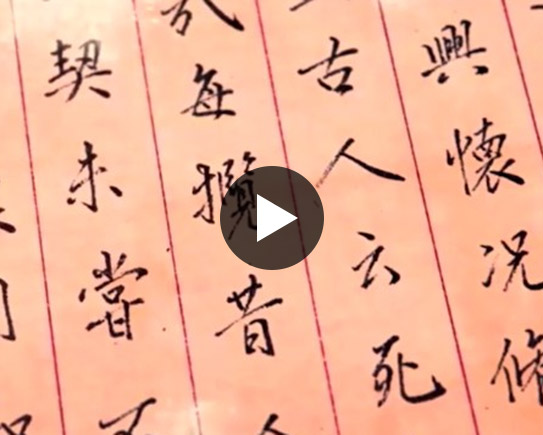 興懷況脩
古人云死
每攬昔
契未嘗不